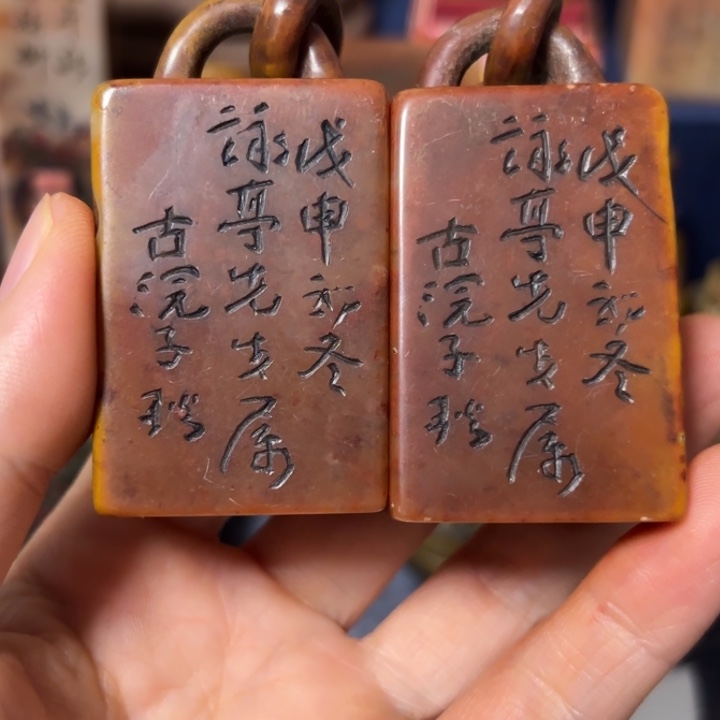 戊申初冬
詠亭先生属
古浣子琰
戊申初冬
詠亭先生属
古浣子琰